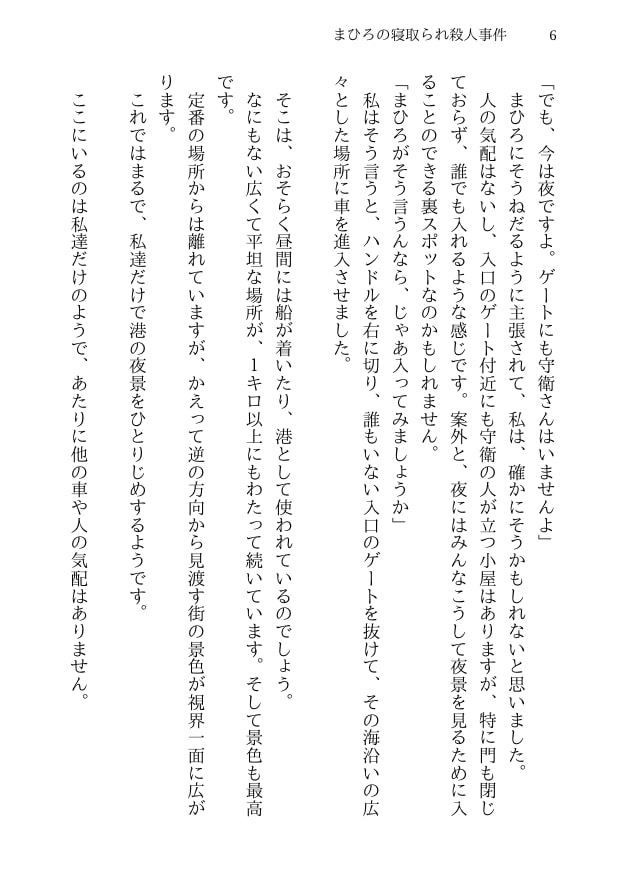 まひろの寝取られ殺人事件 6
「でも、今は夜ですよ。ゲートにも守衛さんはいませんよ」
まひろにそうねだるように主張されて、私は、確かにそうかもしれないと思いました。
人の気配はないし、入口のゲート付近にも守衛の人が立つ小屋はありますが、特に門も閉じ
ておらず、誰でも入れるような感じです。案外と、夜にはみんなこうして夜景を見るために入
ることのできる裏スポットなのかもしれません。
「まひろがそう言うんなら、じゃあ入ってみましょうか」
私はそう言うと、ハンドルを右に切り、誰もいない入口のゲートを抜けて、その海沿いの広
々とした場所に車を進入させました。
そこは、おそらく昼間には船が着いたり、港として使われているのでしょう。
なにもない広くて平坦な場所が、1キロ以上にもわたって続いています。そして景色も最高
です。
定番の場所からは離れていますが、かえって逆の方向から見渡す街の景色が視界一面に広が
ります。
これではまるで、私達だけで港の夜景をひとりじめするようです。
ここにいるのは私達だけのようで、あたりに他の車や人の気配はありません。